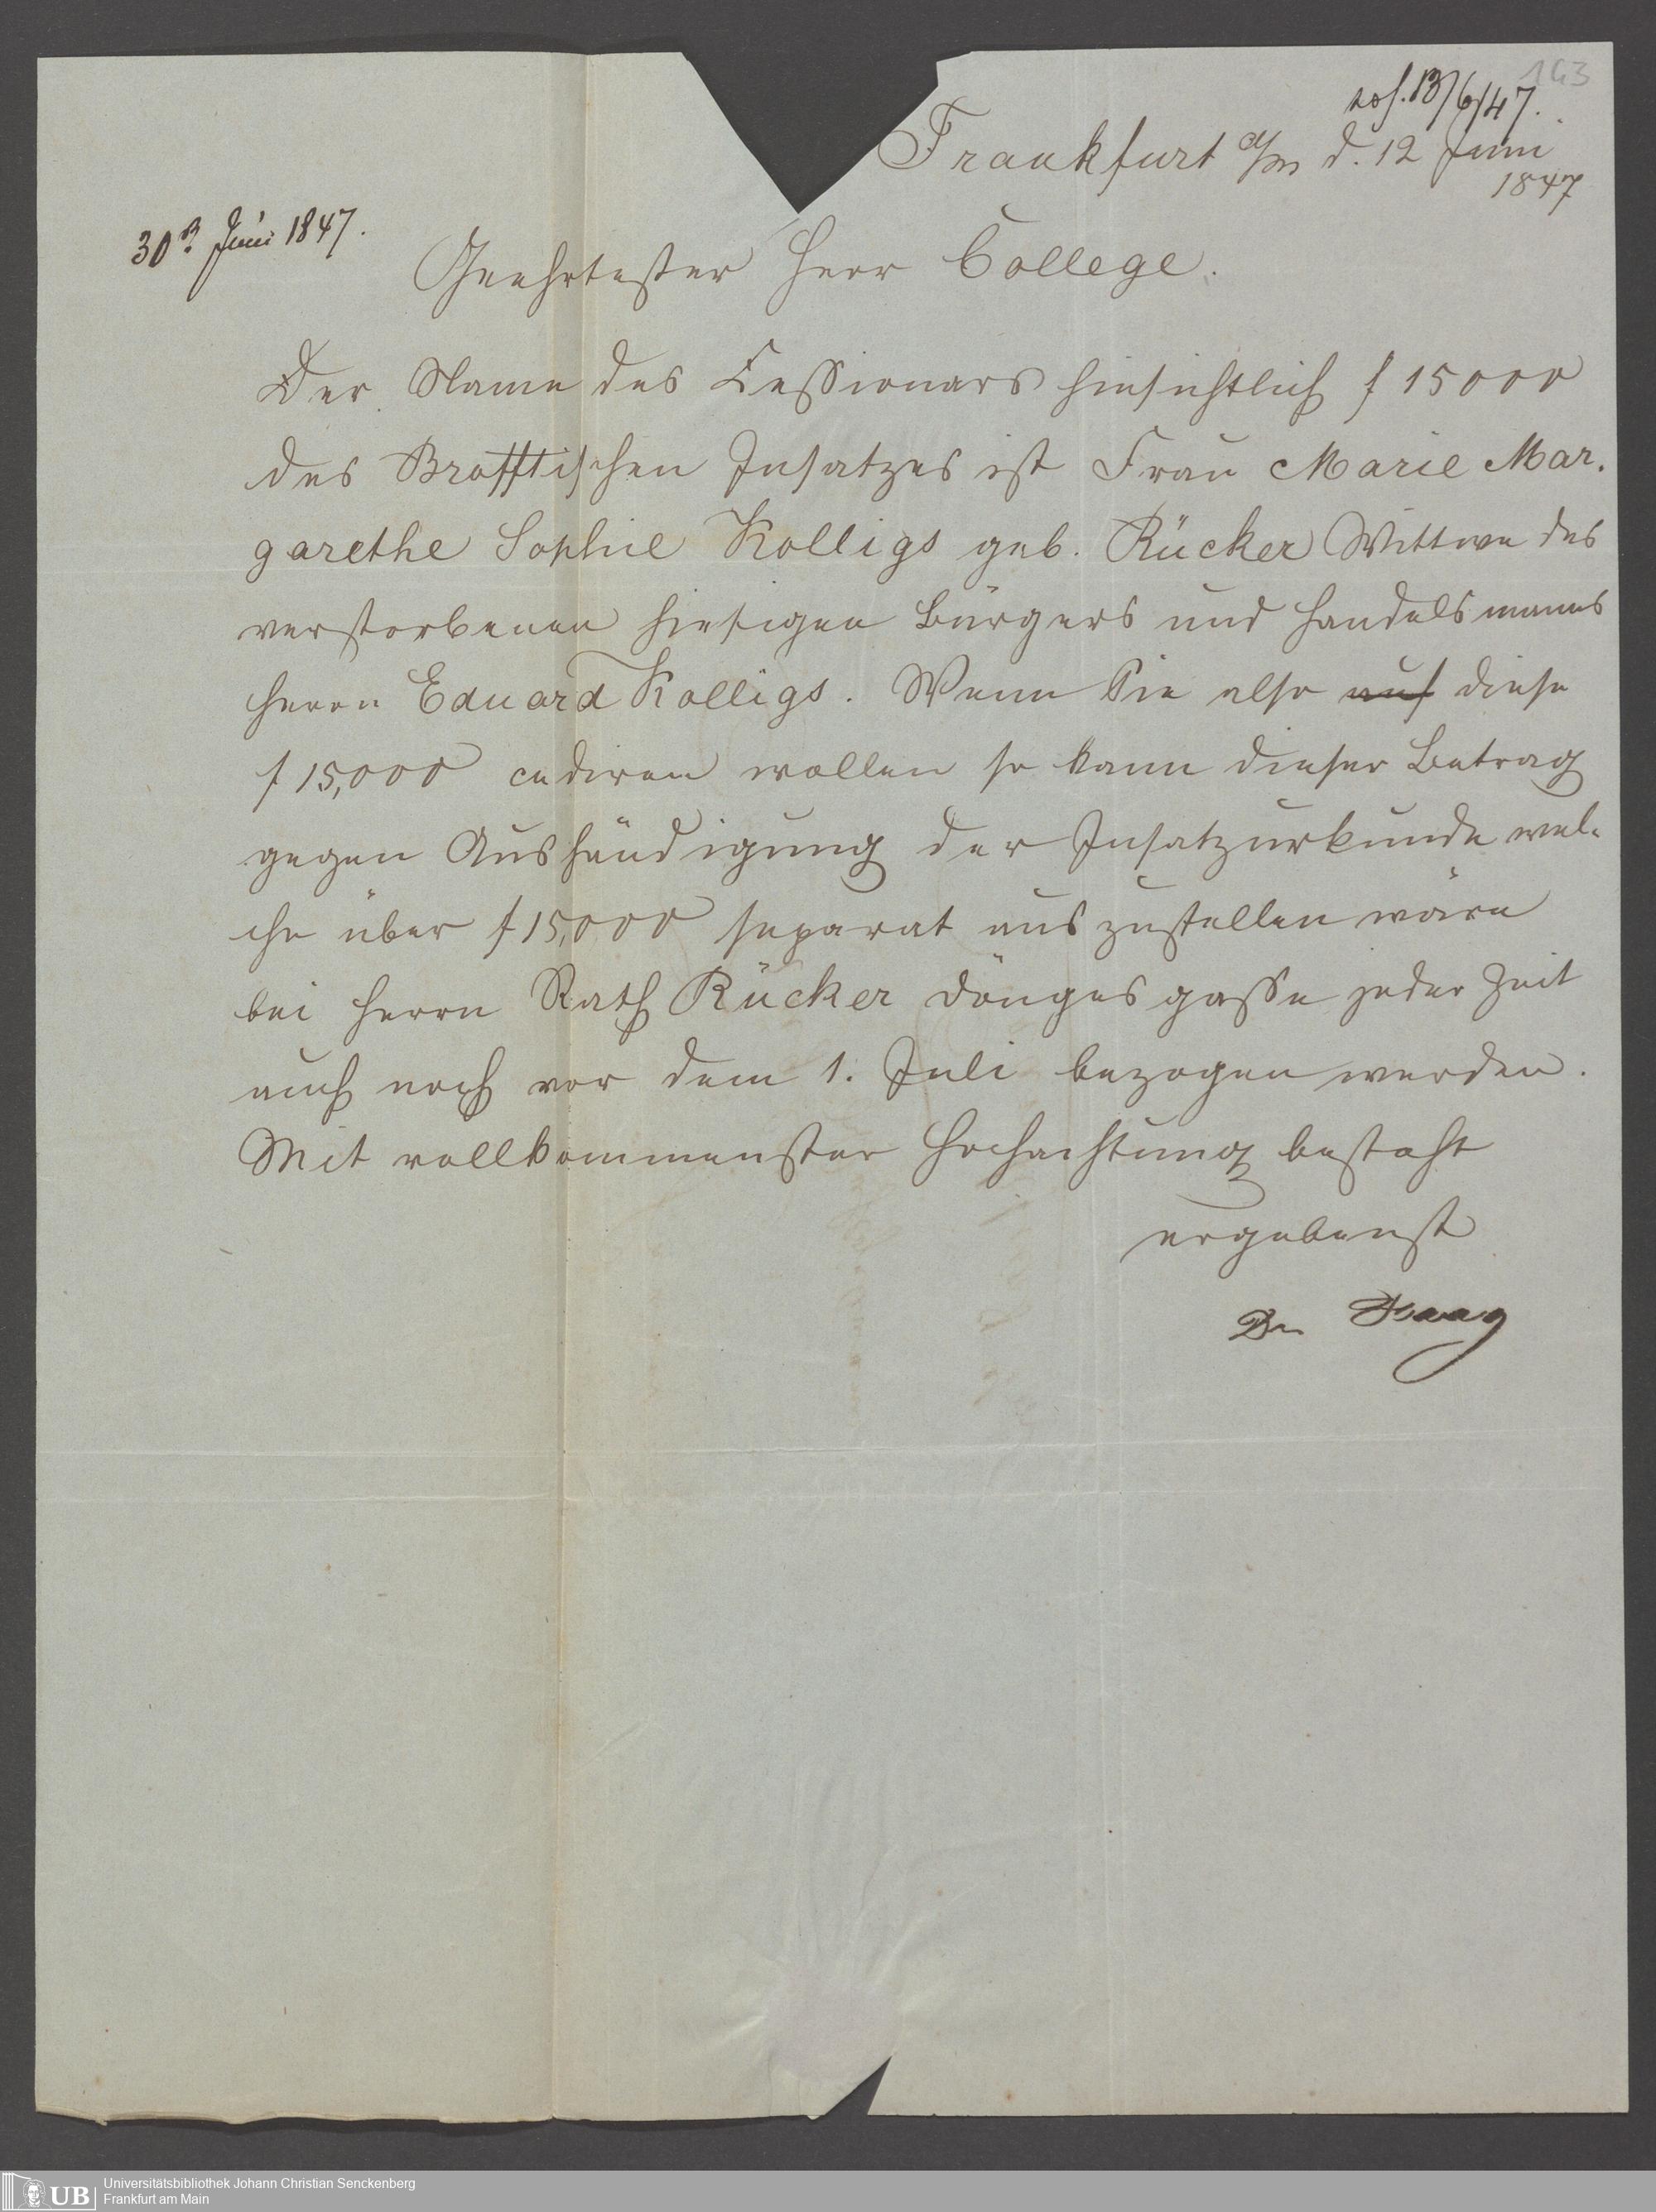 143
13/6/47.
Frankfurt a/m d. 12 Juni
1847
30. Juni 1847.
Geehrtester Herr College.
Der Name des Cessionars hinsichtlich f 15000
des Brofftischen Insatzes ist Frau Marie Mar-
garethe Sophie Kolligs geb. Rücker Wittwe des
verstorbenen hiesigen Bürgers und Handelsmanns
Herrn Eduard Kolligs. Wenn Sie also auf diese
f 15,000 cediren wollen so kann dieser Betrag
gegen Aushändigung der Insatzurkunde wel-
che über f 15,000 separat auszustellen wäre
bei Herrn Rath Rücker Döngesgasse jeder Zeit
auch noch vor dem 1. Juli bezogen werden.
Mit vollkommenster Hochachtung besteht
ergebenst
Dr Haag
UB
Universitätsbibliothek Johann Christian Senckenberg
Frankfurt am Main